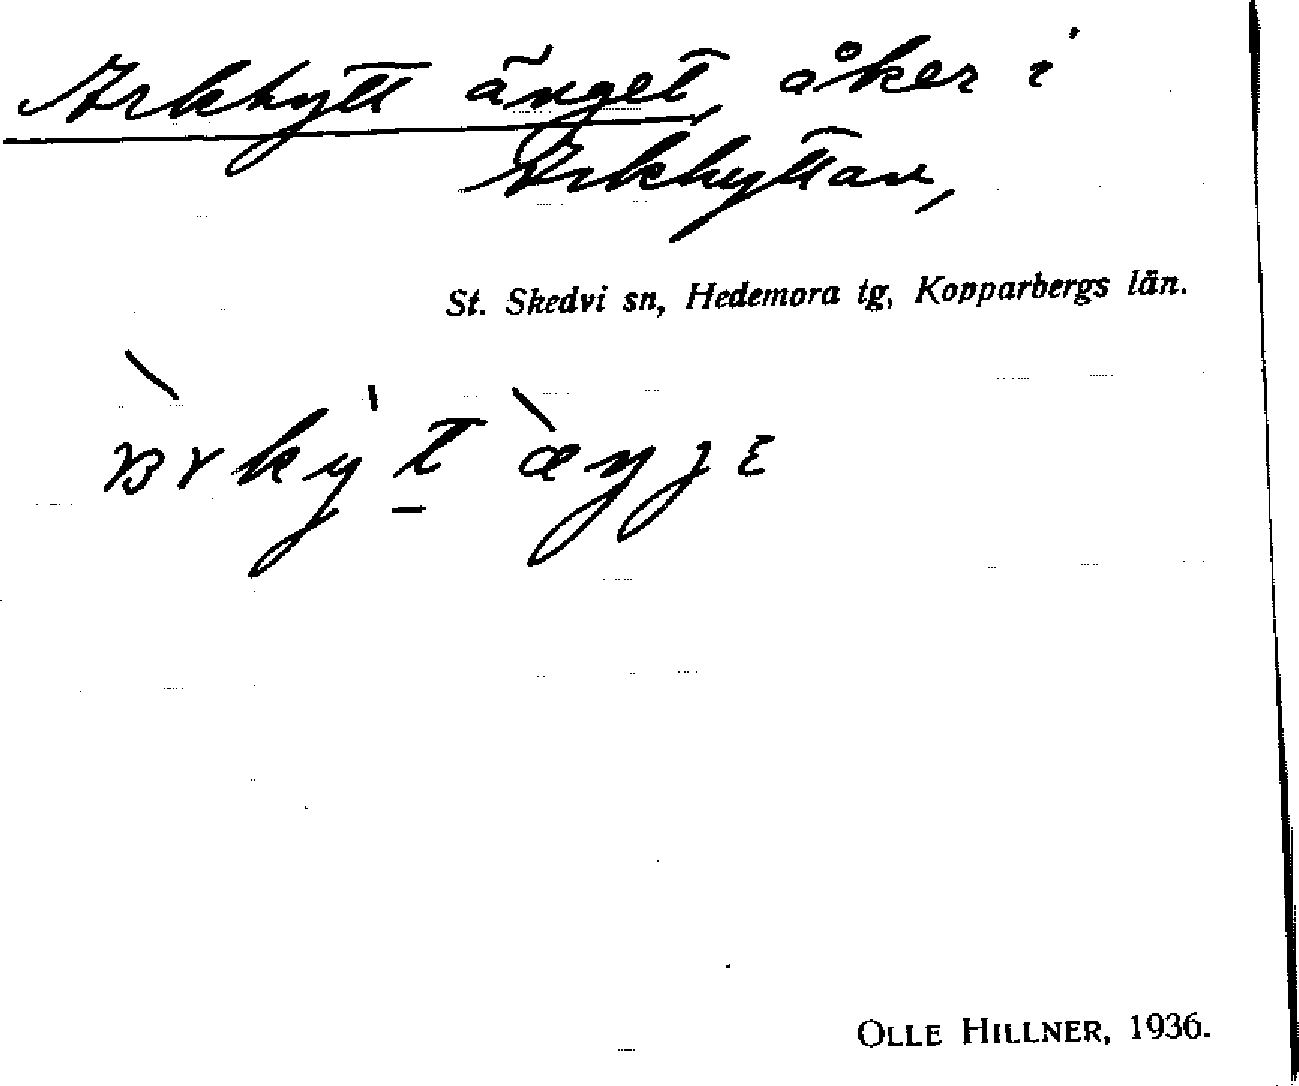 Arkhyttänget, åker i
Arkhyttan,
St. Skedvi sn, Hedemora tg, Kopparbergs län.
OLLE HILLNER, 1936.